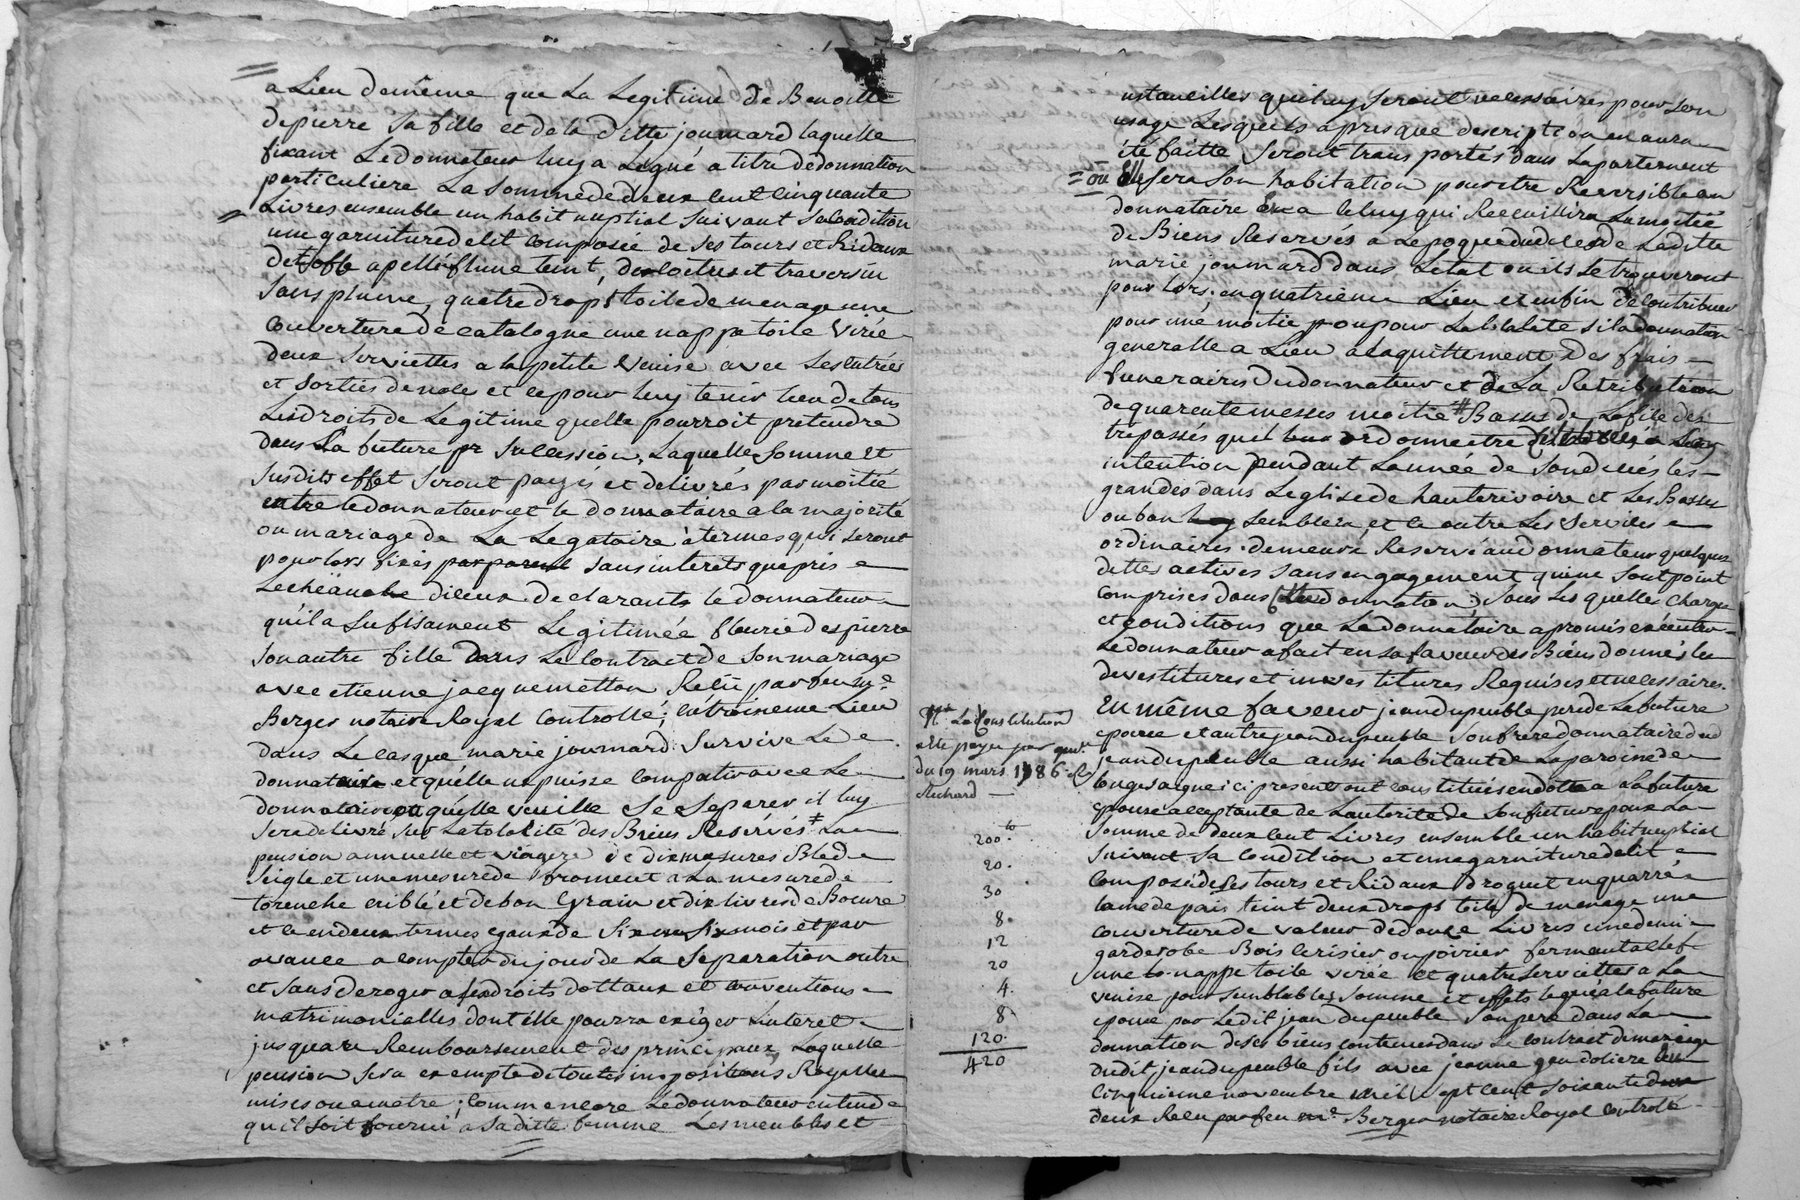 a Lieu demême que La Legitime de Benoitte
depierre sa fille et de la ditte joumard laquelle
fixant Le donnateur luy a Legué a titre de donnation
particuliere La somme de deux cent cinquante
Livres ensemble un habit nuptial suivant sa condition
une garniture de lit composée de ses tours et Ridaux
detoffe apellé flune teint, des loitres et traversin
sans plume, quatre draps toile de menage une
couverture de catalogne une nappe toile virée
deux serviettes a la petite venise avec Les entrées
et sorties de noces et ce pour luy tenir lieu de tous
Les droits de Legitime quelle pourroit pretendre
dans La future pr succession, Laquelle somme et
susdits effet seront payés et delivrés par moitié
entre le donnateur et le donnataire a la majorité
ou mariage de La Legataire à termes qui seront
pour lors fixés sans interets quapres
Lecheance diceux declarants le donnateur
qu'il a sufisament Legitimée fleurie depierre
son autre fille dans Le Contract de son mariage
avec etienne jacquemetton Recu par feu me
Berger notaire Royal Controllé; en troisieme Lieu
dans Le cas que marie joumard survive Le
donnateur et quélle ne puisse compatir avec Le
donnataire ou quélle veuille se separer il luy
sera delivré sur La totalité des Biens Reservés ≠ La
pension annuelle et viagere de dix mesures Bled
seigle et une mesure de froment a La mesure de
torenche criblé et de bon Grain et dix livres de Beurre
et ce en deux termes egaux de six en six mois et par
avance a compter du jour de La separation outre
et sans deroger a ses droits dottaux et conventions
matrimonialles dont élle pourra exiger L'interet
jusquau Remboursement des principaux Laquelle
pension sera exempte de toutes impositions Royalles
mises ou a metre; Comme encore Le donnateur entend
qu'il soit fourni a sa ditte femme Les meubles et
ustancilles qui luy seront necessaires pour son
usage Lesquels apres que description en aura
été faitte seront transportés dans Lapartement
= ou Elle fera son habitation pour etre Reversible au
donnataire ou a celuy qui Receuillira La moitié
de Biens Reservés a Lepoque du deces de Laditte
marie joumard dans Letat ou ils se trouveront
pour lors; en quatrieme Lieu et enfin de contribuer
pour une moitie pour La totalité si la donnation
generalle a Lieu a Laquittement des frais
funeraires du donnateur et de La Retribution
de quarente messes moitié Basses de Loffice des
trepassés qu'il ordonne etre a son
intention pendant Lannée de son deces les
grandes dans Leglise de hauterivoire et Les Basses
ou bon semblera, et ce outre Les services
ordinaires. demeure Reservé au donnateur quelques
dettes actives sans engagement qui ne sont point
comprises dans donnation, sous Lesquelles charges
et conditions que Le donnataire a promis executer
Le donnateur a fait en sa faveur des Biens donnés les
devestitures et investitures Requises et necessaires.
En même faveur jean dupeuble pere de La future
epouse et autre jean dupeuble son frere donnataire dud
jean dupeuble aussi habitant de La paroisse de
longesaigne ici present ont constitués en dotte a La future
epouse acceptante de Lautorité de son futur epoux La
somme de deux cent Livres ensemble un habit nuptial
suivant sa condition et une garniture de lit
composé de ses tours et Ridaux droguet en quarré
laine de pais teint deux draps toile de menage une
couverture de valeur de douze Livres une demi
garderobe Bois cerisier ou poirier fermant a clef
une nappe toile virée et quatre serviettes a La
venise pour semblables somme et effets legués a la future
epouse par Ledit jean dupeuble son pere dans La
donnation de ses biens contenue dans Le contract de mariage
dudit jean dupeuble fils avec jeanne gondoliere du
cinquieme novembre mil sept cent soixante
deux Recu par feu me Berger notaire Royal controllé
Na La Constitution
a ete payée par quit.
du 19 mars 1786
Richard
200 lt
20.
30
8.
12
20
4.
8
120.
420